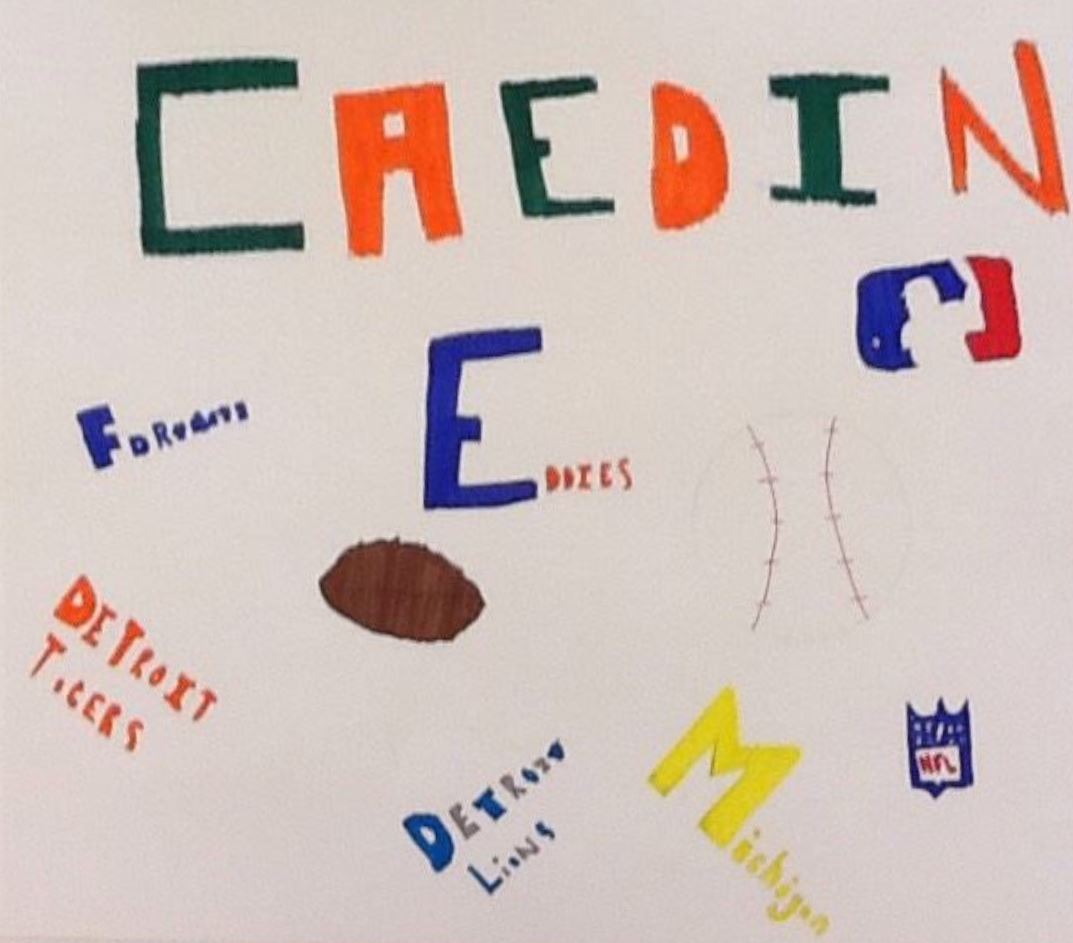 CAEDIN
EDDIES
DETROIT
TIGERS
DETROIT
LIONS
Michigan
NFL